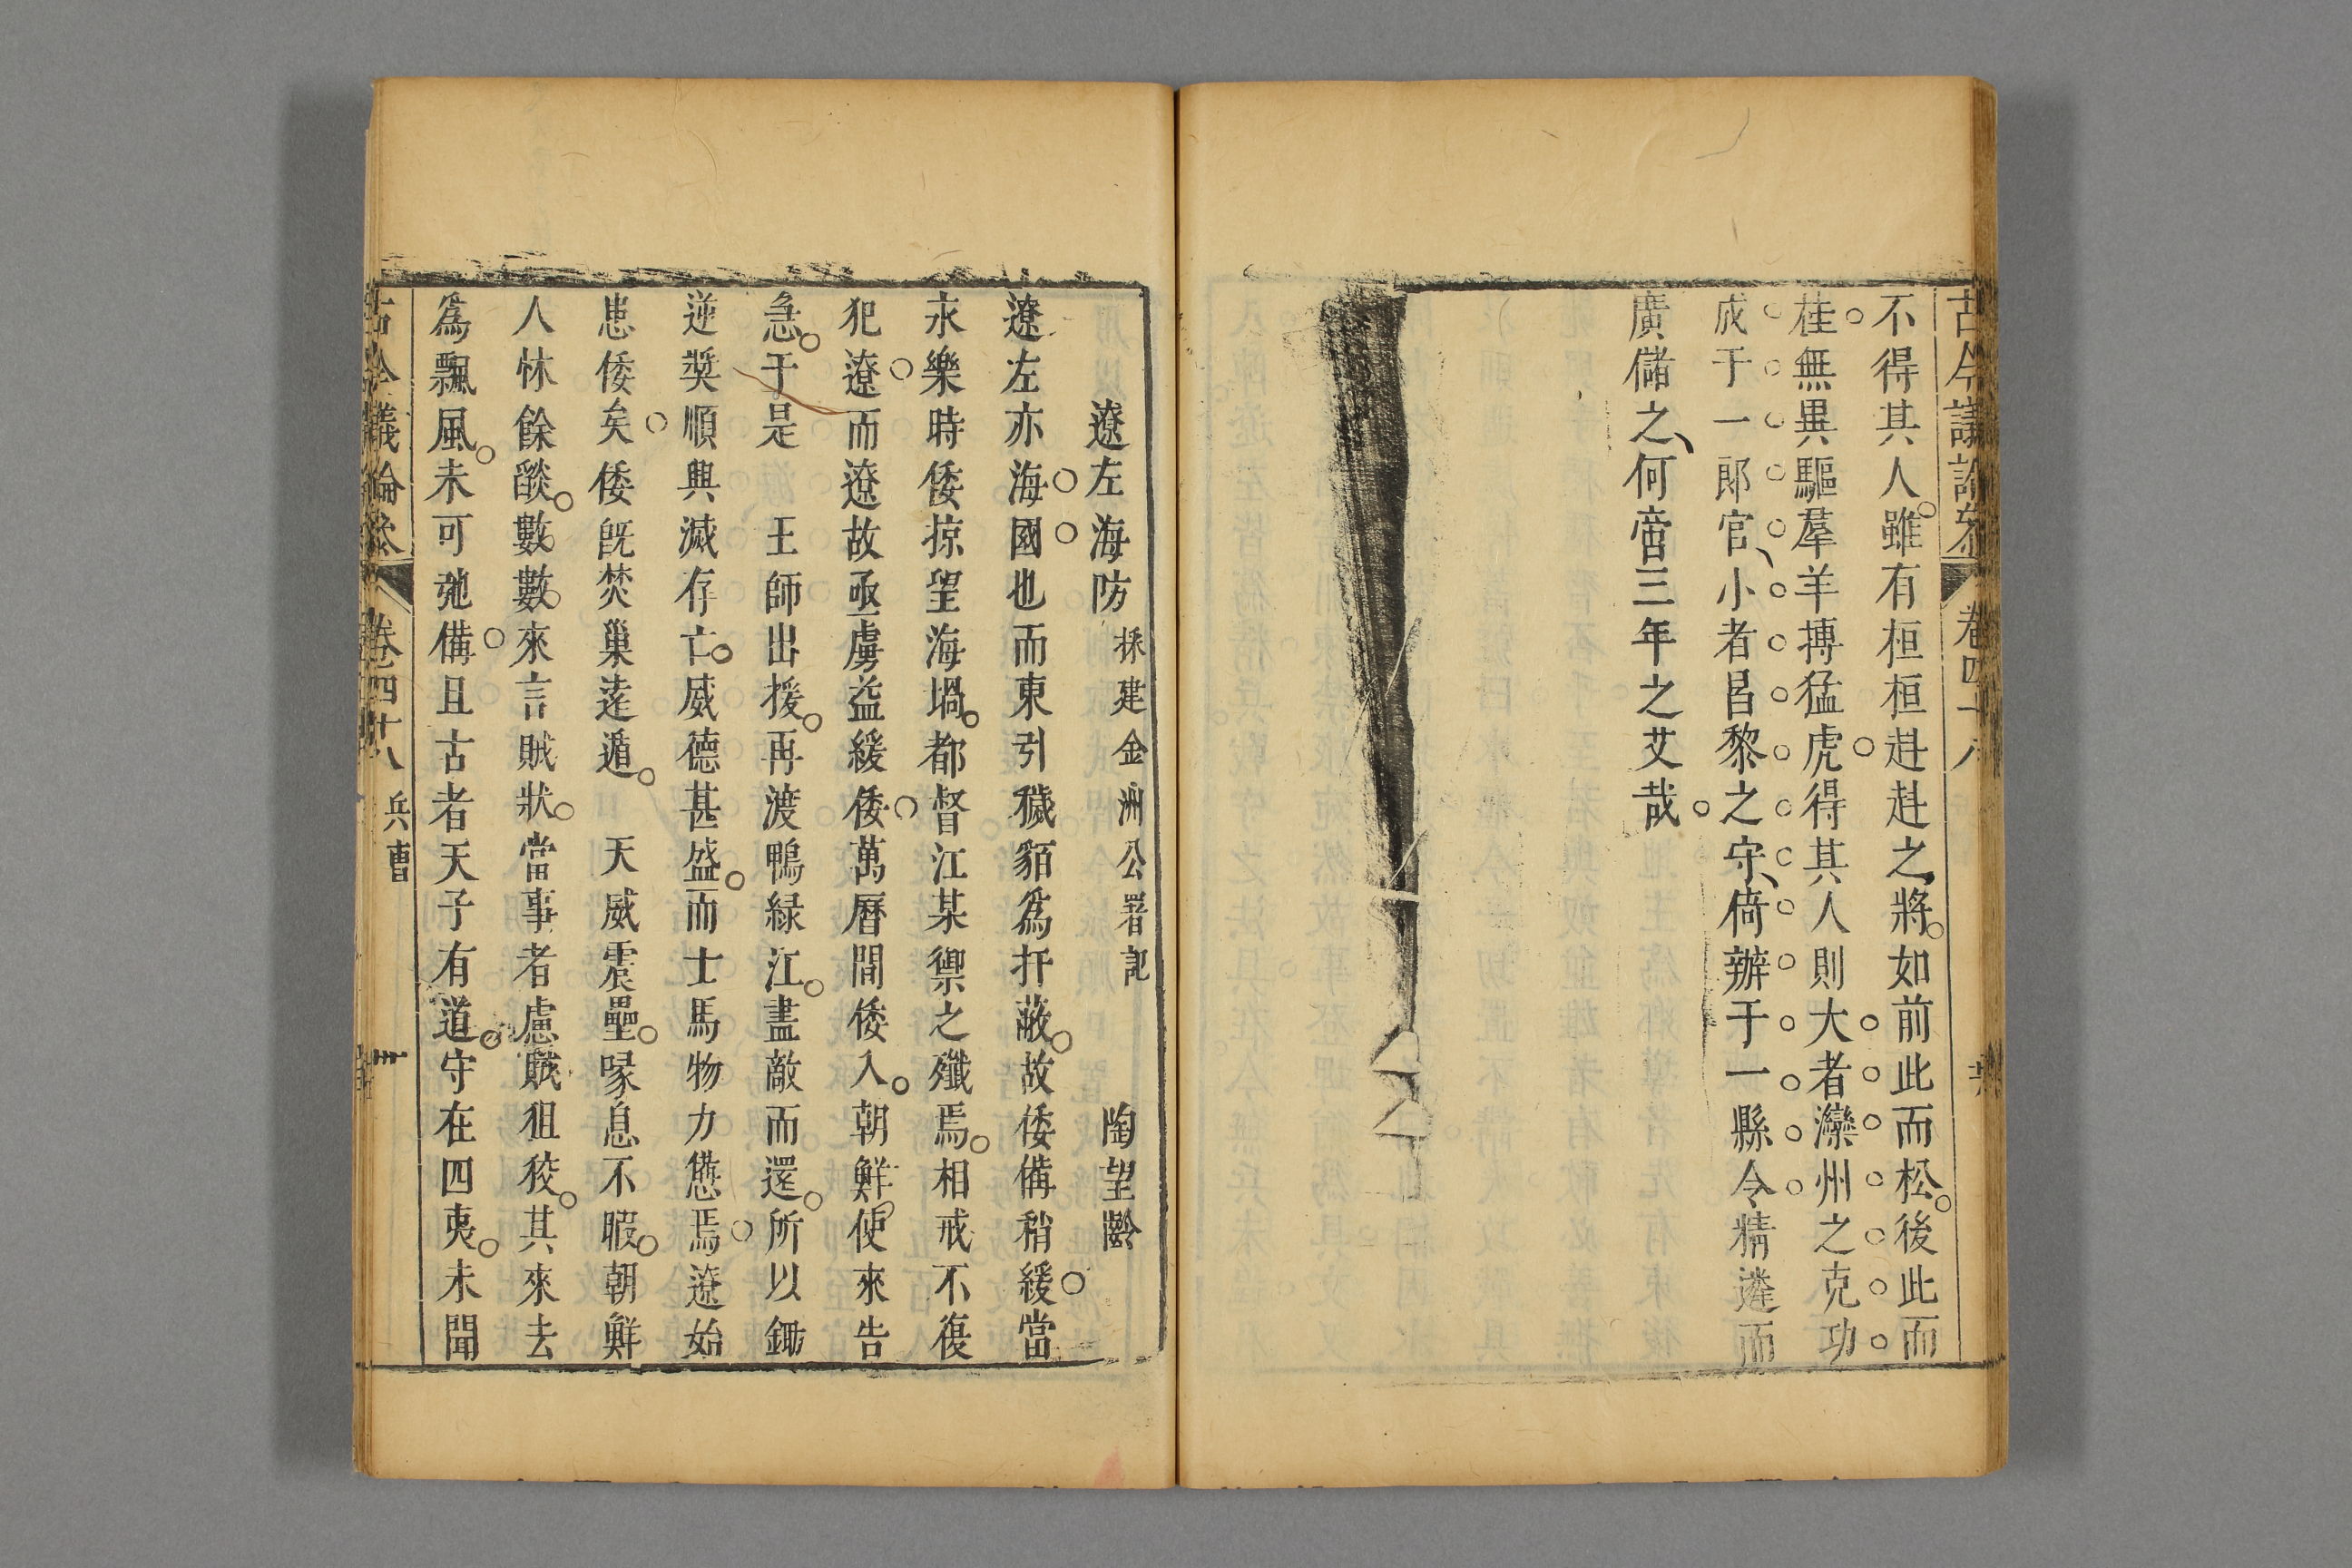 古今議論參 卷四十八
不得其人雖有桓桓赳赳之將如前此而松後此而
桂無異驅羣羊搏猛虎得其人則大者灤州之克功
成于一郎官小者昌黎之守倚辦于一縣令精遴而
廣儲之何啻三年之艾哉
遼左海防 採建金洲公署記 陶望齡
遼左亦海國也而東引穢貊為扞蔽故倭備稍緩當
永樂時倭掠望海堝都督江某禦之殲焉相戒不復
犯遼而遼故亟虜益緩倭萬曆間倭入朝鮮使來告
急于是 王師出援再渡鴨緑江盡敵而還所以鋤
逆奨順興滅存亡威德甚盛而士馬物力憊焉遼始
患倭矣倭既焚巢逺遁 天威震疊喙息不暇朝鮮
人怵餘燄數數來言賊狀當事者慮賊狙狡其來去
為飄風未可弛備且古者天子有道守在四夷未聞
古今議論參 卷四十八 兵曹